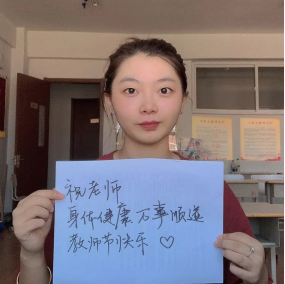 祝老师
身体健康 万事顺遂
教师节快乐 ♡